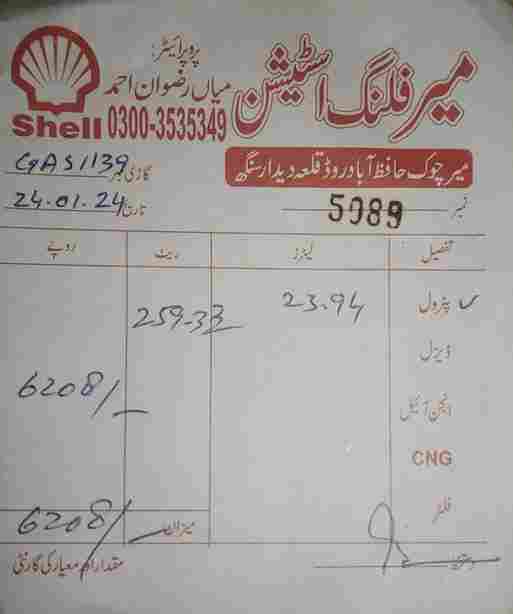 پروپرائیٹر:
میاں رضوان احمد
میر فلنگ اسٹیشن
Shell 0300-3535349
میر چوک حافظ آباد روڈ قلعہ دیدار سنگھ
گاڑی نمبر GAS1139
تاریخ 24-01-24
نمبر 5089
تفصیل لیٹرز ریٹ روپے
پٹرول ✓ 23.94 259-33
ڈیزل
6208/-
انجن آئیل
CNG
فلٹر
میزان 6208/-
دستخط
مقدار اور معیار کی گارنٹی